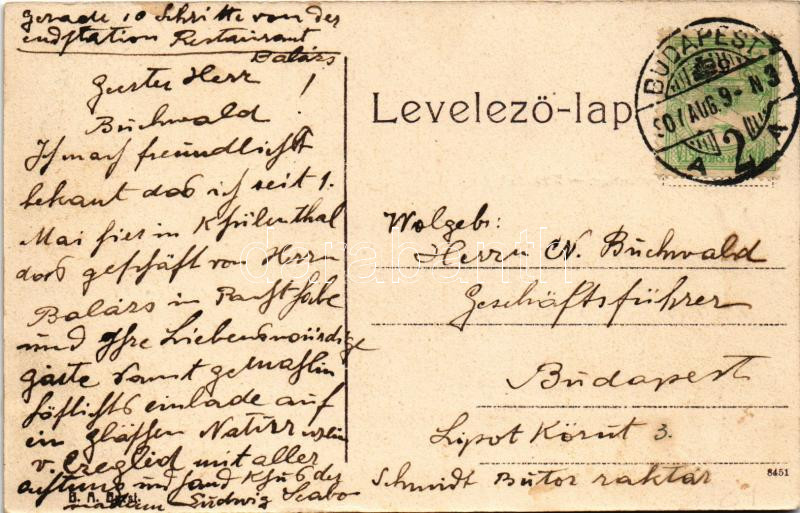 gerade 10 Schritte von der
endstation Restaurant
Balázs
Guter Herr
Buchwald!
Ich mach freundlichst
bekant das ich seit 1.
Mai hier in Khülenthal
das geschäft von Herrn
Balázs in Pacht habe
und Ihre Liebenswürdige
gäste samt gemahlin
höflichst einlade auf
ein gläschen Natur
v. Czegléd mit aller
achtung und Hand Khuß der
madam Ludwig Szabo
B. R. Bpest.
Levelező-lap
BUDAPEST
907 AUG. 9 - N 3
A 2 A
Wolgeb:
Herrn N. Buchwald
Geschäftsführer
Budapest
Lipot Körut 3.
Schmidt Butor raktár
8451
darabanth